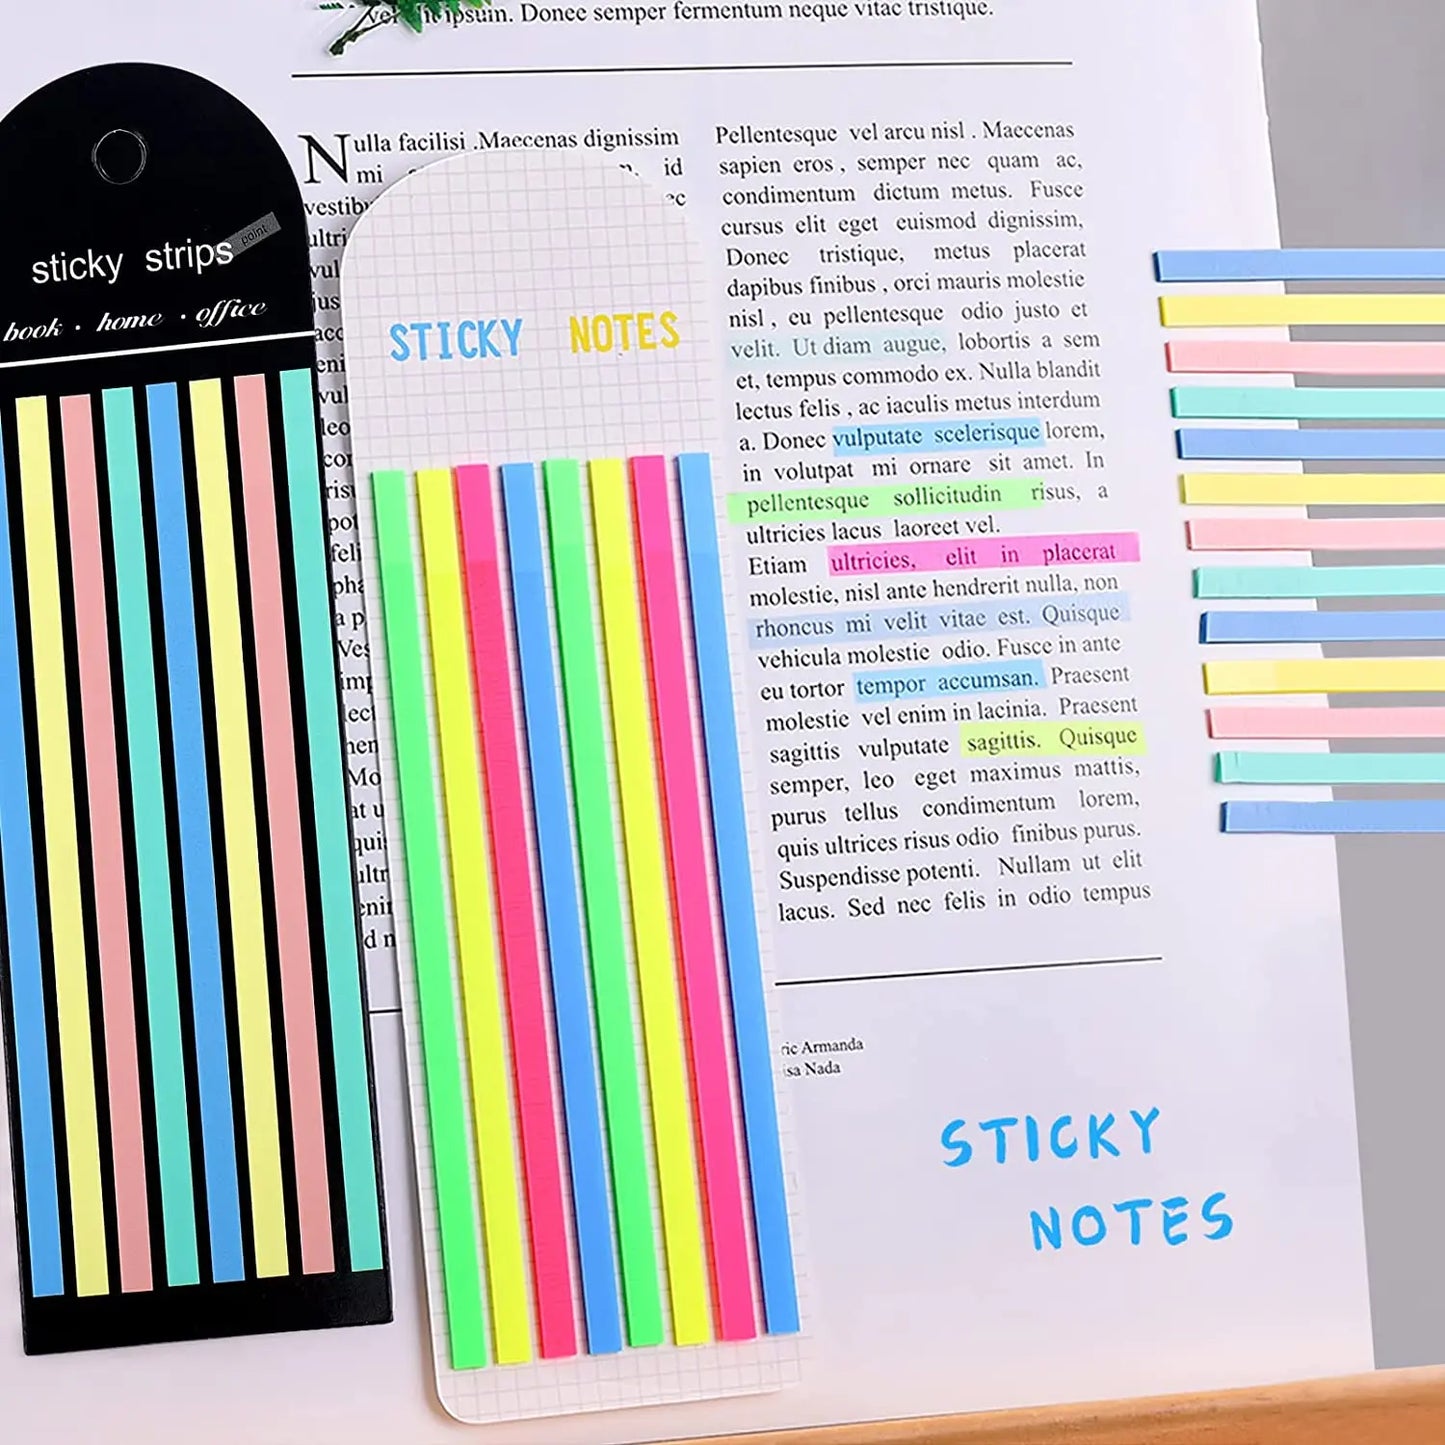 vel it ipsum. Donec semper fermentum neque vitae tristique.
sticky strips
point
book · home · office
STICKY NOTES
Nulla facilisi .Maecenas dignissim
mi id
vestibu ec
ultri
vul
jus
acc
eni
vul
leo
cor
risu
pot
feli
pha
a p
Ves
imp
lect
hen
Mo
at u
quis
ultr
enim
d n
Pellentesque vel arcu nisl . Maecenas
sapien eros , semper nec quam ac,
condimentum dictum metus. Fusce
cursus elit eget euismod dignissim,
Donec tristique, metus placerat
dapibus finibus , orci mauris molestie
nisl , eu pellentesque odio justo et
velit. Ut diam augue, lobortis a sem
et, tempus commodo ex. Nulla blandit
lectus felis , ac iaculis metus interdum
a. Donec vulputate scelerisque lorem,
in volutpat mi ornare sit amet. In
pellentesque sollicitudin risus, a
ultricies lacus laoreet vel.
Etiam ultricies, elit in placerat
molestie, nisl ante hendrerit nulla, non
rhoncus mi velit vitae est. Quisque
vehicula molestie odio. Fusce in ante
eu tortor tempor accumsan. Praesent
molestie vel enim in lacinia. Praesent
sagittis vulputate sagittis. Quisque
semper, leo eget maximus mattis,
purus tellus condimentum lorem,
quis ultrices risus odio finibus purus.
Suspendisse potenti. Nullam ut elit
lacus. Sed nec felis in odio tempus
ric Armanda
isa Nada
STICKY
NOTES